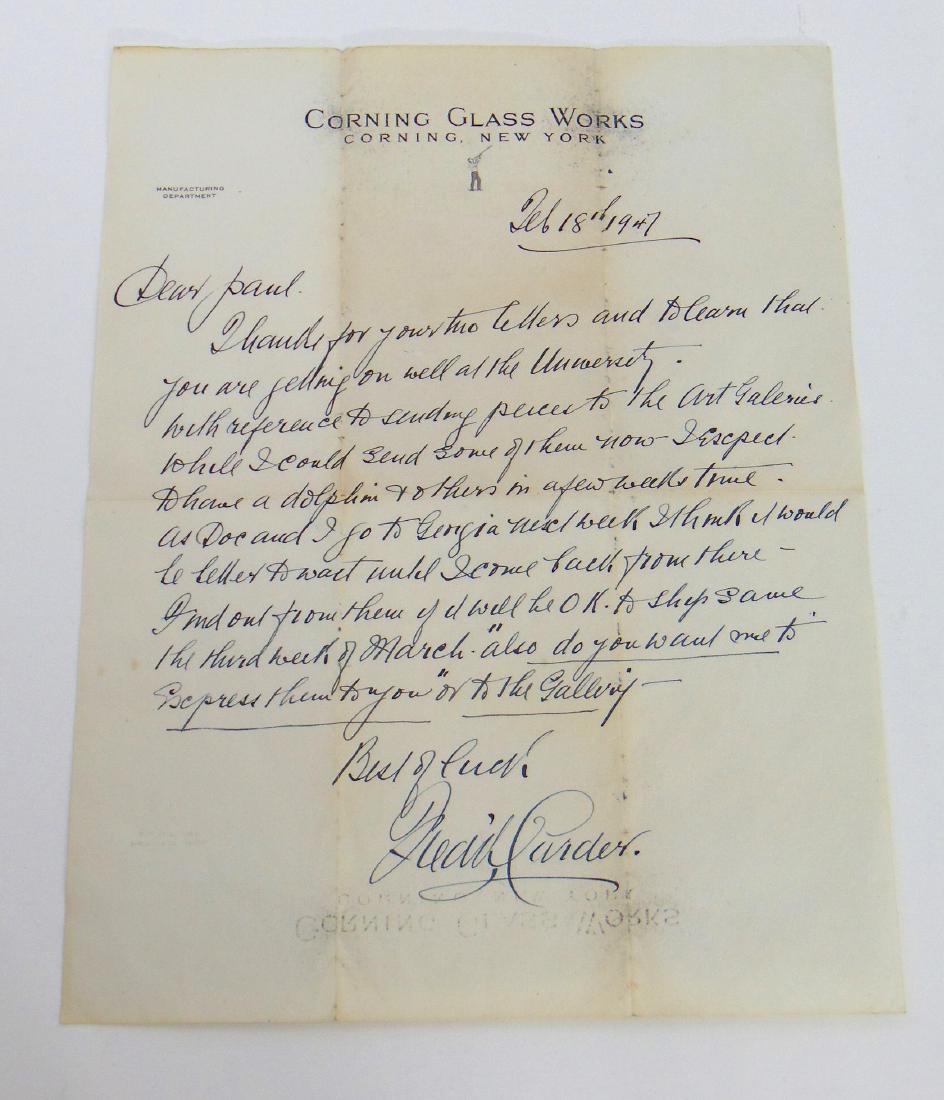 CORNING GLASS WORKS
CORNING, NEW YORK
MANUFACTURING
DEPARTMENT
Feb 18th 1947
Dear Paul.
Thanks for your two letters and to learn that
you are getting on well at the University.
With reference to sending pieces to the Art Galeries
While I could send some of them now I Expect
to have a dolphin & others in a few weeks time.
As Doc and I go to Georgia next week I think it would
be better to wait until I come back from there –
Find out from them if it will be O.K. to ship same
the third week of March. "also do you want me to
Express them to you" or to the Gallery –
Best of luck
Fredk Carder.
CORNING NEW YORK
CORNING GLASS WORKS